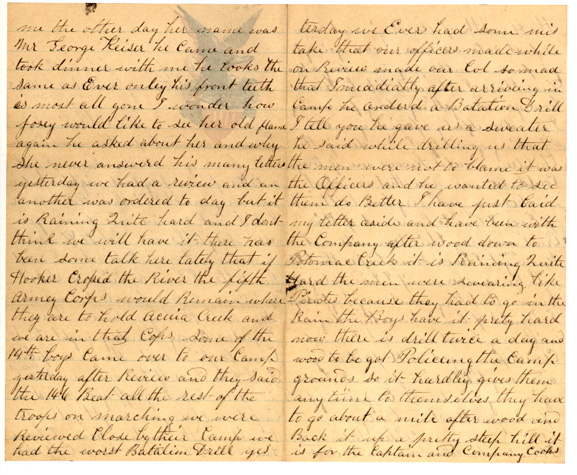 me the other day her name was
Mr George Keiser he Came and
took dinner with me he looks the
same as Ever onley his front teeth
is most all gone I wonder how
Josey would like to see her old flame
again he asked about her and why
she never answerd his many letters
yesterday we had a review and an
another was ordered to day but it
is Raining Quite hard and I dont
think we will have it there has
ben some talk here lately that if
Hooker Crosed the River the fifth
Army Corps would Remain where
they are to hold Acuia Creek and
we are in that Cops Some of the
19th boys Came over to our Camp
yesterday after Review and they said
the 144 Beat all the rest of the
troops on marching we were
Reviewed Close by their Camp we
had the worst Batalion Drill yes
terday we Ever had some mis
take that our officers made while
on Review made our Col so mad
that Immediatly after arriveing in
Camp he orderd a Batation Drill
I tell you he gave us a sweater
he said while drilling us that
the men were not to blame it was
the Officers and he wanted to see
them do Better I have just Laid
my letter aside and have been with
the Company after wood down to
Potomac Creek it is Raining Quite
Hard the men were swearing like
Pirates because they had to go in the
Rain the Boys have it prety hard
now there is drill twice a day and
wood to be got Policeing the Camp
grounds so it hardley gives them
any time to themselves they have
to go about a mile after wood and
Back it up a pretty steep hill it
is for the Captain and Company Cooks